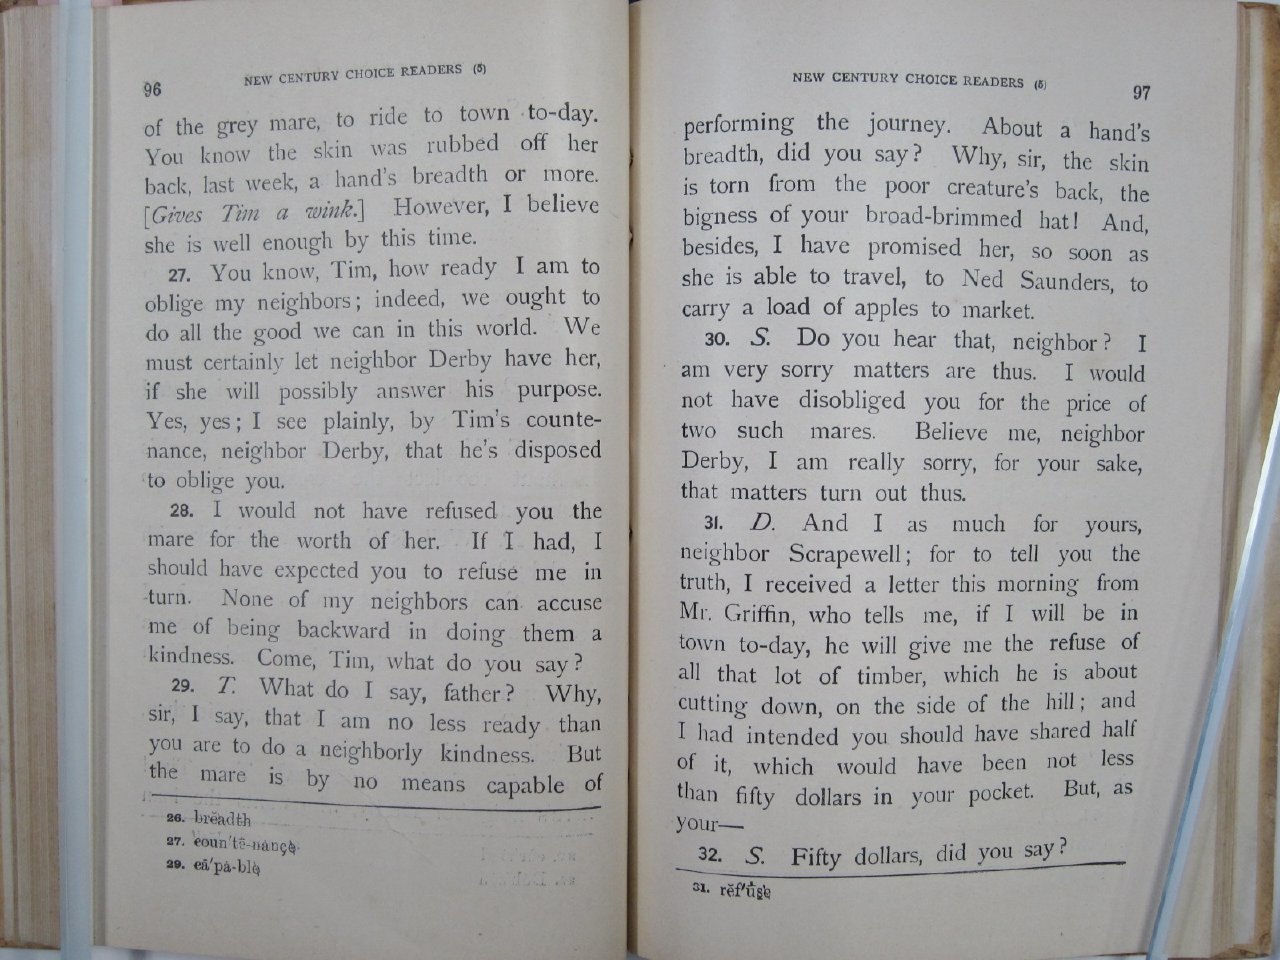 96
NEW CENTURY CHOICE READERS (5)
of the grey mare, to ride to town to-day.
You know the skin was rubbed off her
back, last week, a hand's breadth or more.
[Gives Tim a wink.] However, I believe
she is well enough by this time.
27. You know, Tim, how ready I am to
oblige my neighbors; indeed, we ought to
do all the good we can in this world. We
must certainly let neighbor Derby have her,
if she will possibly answer his purpose.
Yes, yes; I see plainly, by Tim's counte-
nance, neighbor Derby, that he's disposed
to oblige you.
28. I would not have refused you the
mare for the worth of her. If I had, I
should have expected you to refuse me in
turn. None of my neighbors can accuse
me of being backward in doing them a
kindness. Come, Tim, what do you say?
29. T. What do I say, father? Why,
sir, I say, that I am no less ready than
you are to do a neighborly kindness. But
the mare is by no means capable of
26. brĕadth
27. coun'tē-nançe
29. cā'pȧ-ble
NEW CENTURY CHOICE READERS (5)
97
performing the journey. About a hand's
breadth, did you say? Why, sir, the skin
is torn from the poor creature's back, the
bigness of your broad-brimmed hat! And,
besides, I have promised her, so soon as
she is able to travel, to Ned Saunders, to
carry a load of apples to market.
30. S. Do you hear that, neighbor? I
am very sorry matters are thus. I would
not have disobliged you for the price of
two such mares. Believe me, neighbor
Derby, I am really sorry, for your sake,
that matters turn out thus.
31. D. And I as much for yours,
neighbor Scrapewell; for to tell you the
truth, I received a letter this morning from
Mr. Griffin, who tells me, if I will be in
town to-day, he will give me the refuse of
all that lot of timber, which he is about
cutting down, on the side of the hill; and
I had intended you should have shared half
of it, which would have been not less
than fifty dollars in your pocket. But, as
your—
32. S. Fifty dollars, did you say?
31. rĕf'ūse